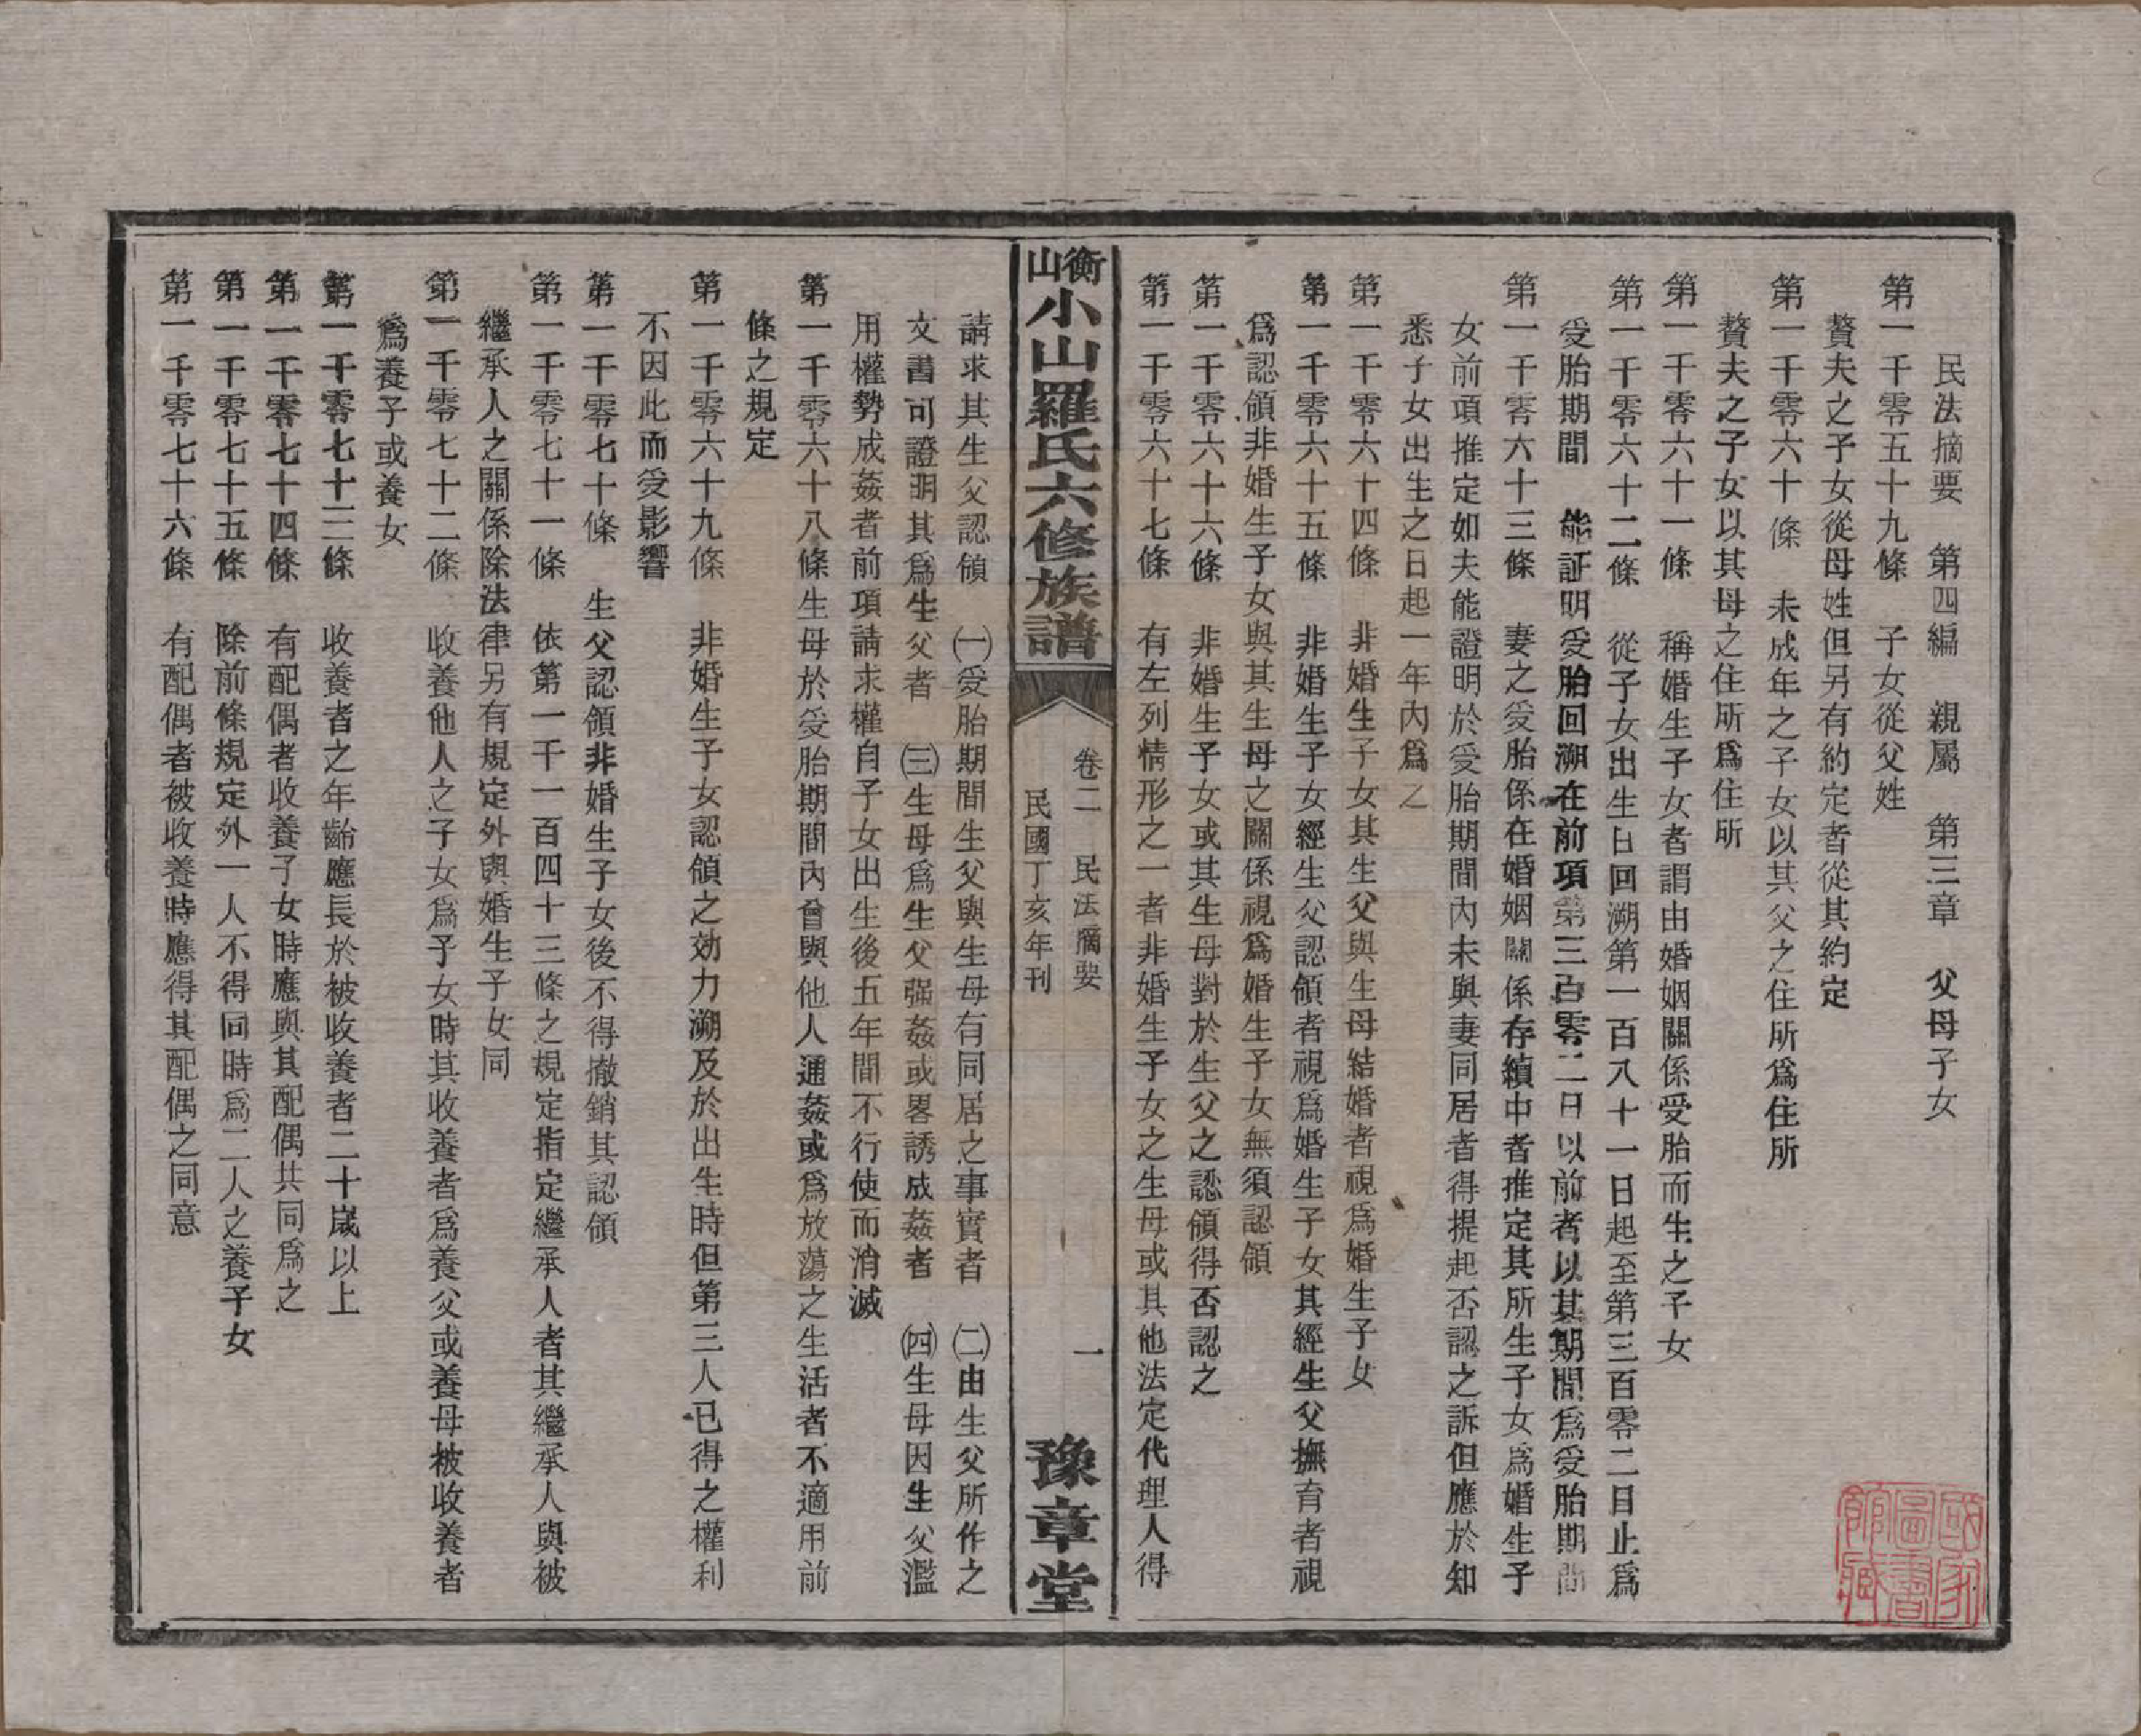 民法摘要　第四編　親屬　第三章　父母子女
第一千零五十九條　子女從父姓
贅夫之子女從母姓但另有約定者從其約定
第一千零六十條　未成年之子女以其父之住所爲住所
贅夫之子女以其母之住所爲住所
第一千零六十一條　稱婚生子女者謂由婚姻關係受胎而生之子女
第一千零六十二條　從子女出生日回溯第一百八十一日起至第三百零二日止爲
受胎期間　能証明受胎回溯在前項第三百零二日以前者以其期間爲受胎期間
第一千零六十三條　妻之受胎係在婚姻關係存續中者推定其所生子女爲婚生子
女前項推定如夫能證明於受胎期間內未與妻同居者得提起否認之訴但應於知
悉子女出生之日起一年內爲之
第一千零六十四條　非婚生子女其生父與生母結婚者視爲婚生子女
第一千零六十五條　非婚生子女經生父認領者視爲婚生子女其經生父撫育者視
爲認領非婚生子女與其生母之關係視爲婚生子女無須認領
第一千零六十六條　非婚生子女或其生母對於生父之認領得否認之
第一千零六十七條　有左列情形之一者非婚生子女之生母或其他法定代理人得
衡山小山羅氏六修族譜
卷二　民法摘要　一
民國丁亥年刊
豫章堂
請求其生父認領　㈠受胎期間生父與生母有同居之事實者　㈡由生父所作之
文書可證明其爲生父者　㈢生母爲生父强姦或畧誘成姦者　㈣生母因生父濫
用權勢成姦者前項請求權自子女出生後五年間不行使而消滅
第一千零六十八條生母於受胎期間內曾與他人通姦或爲放蕩之生活者不適用前
條之規定
第一千零六十九條　非婚生子女認領之効力溯及於出生時但第三人已得之權利
不因此而受影響
第一千零七十條　生父認領非婚生子女後不得撤銷其認領
第一千零七十一條　依第一千一百四十三條之規定指定繼承人者其繼承人與被
繼承人之關係除法律另有規定外與婚生子女同
第一千零七十二條　收養他人之子女爲子女時其收養者爲養父或養母被收養者
爲養子或養女
第一千零七十三條　收養者之年齡應長於被收養者二十歲以上
第一千零七十四條　有配偶者收養子女時應與其配偶共同爲之
第一千零七十五條　除前條規定外一人不得同時爲二人之養子女
第一千零七十六條　有配偶者被收養時應得其配偶之同意
國家圖書館藏